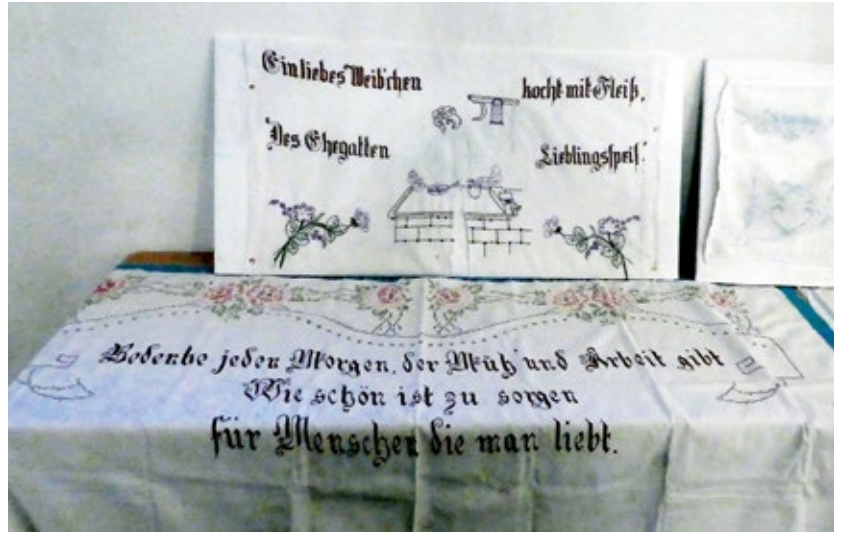 Ein liebes Weibchen kocht mit Fleiß,
Des Ehegatten Lieblingsspeis!
Bedenke jeden Morgen, der Müh' und Arbeit gibt
Wie schön ist zu sorgen
für Menschen die man liebt.